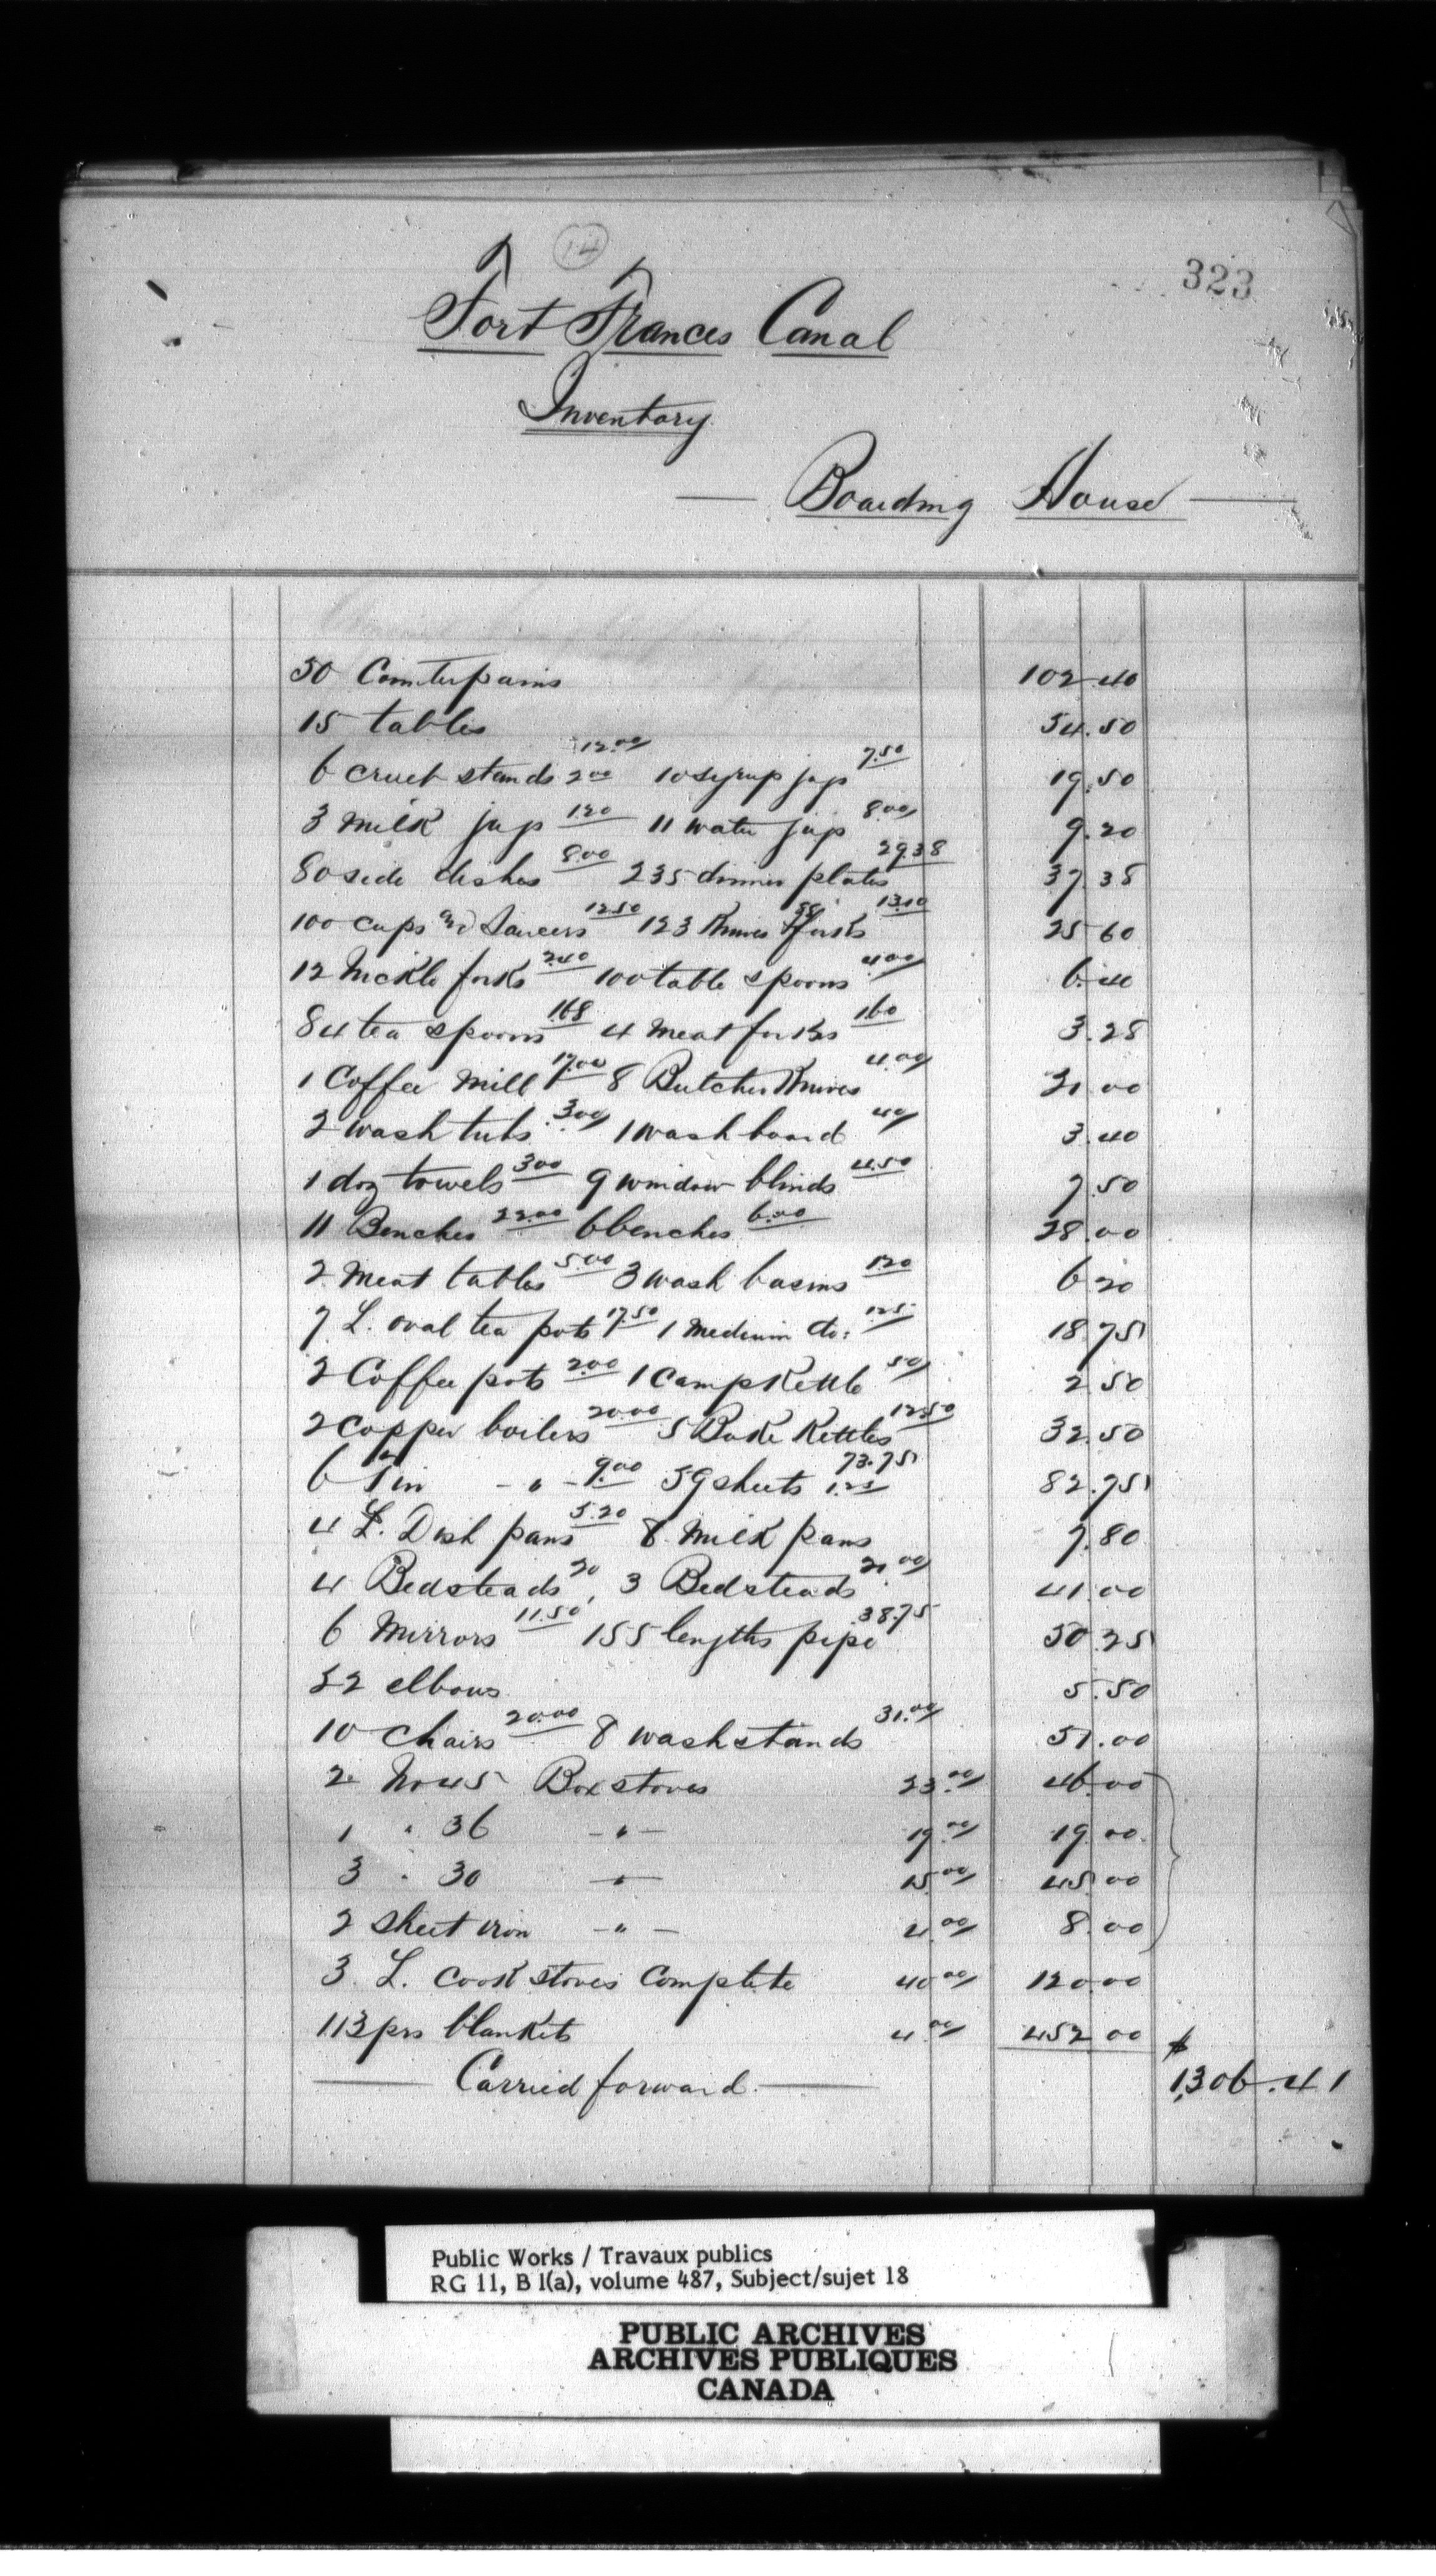 14
323
Fort Frances Canal
Inventory
— Boarding House —
50 Counterpains 102.40
15 tables 54.50
6 cruet stands 2 00 12.00 10 syrup jugs 7.50 19.50
3 Milk jugs 1.20 11 water jugs 8.00 9.20
80 side dishes 8.00 235 dinner plates 29.38 37.38
100 cups and Saucers 12.50 123 Knives forks 13.10 25.60
12 Nickle forks 2.40 100 table spoons 4.00 6.40
84 tea spoons 1.68 4 Meat forks 1.60 3.28
1 Coffee Mill 17.00 8 Butcher Knives 4.00 21.00
2 wash tubs 3.00 1 wash board 40 3.40
1 doz towels 3.00 9 window blinds 4.50 7.50
11 Benches 22.00 6 benches 6.00 28.00
2 Meat tables 5.00 3 wash basins 1.20 6.20
7 L. oval tea pots 17.50 1 Medium do: 1.25 18.75
2 Coffee pots 2.00 1 Camp Kettle 50 2.50
2 Copper boilers 20.00 5 Bake Kettles 12.50 32.50
6 Tin - " - 9.00 59 sheets 1.25 73.75 82.75
4 L. Dish pans 5.20 8 Milk pans 7.80
4 Bedsteads 20, 3 Bedsteads 21.00 41.00
6 Mirrors 11.50 155 lengths pipe 38.75 50.25
22 elbows 5.50
10 Chairs 20.00 8 washstands 31.00 51.00
2 No 45 Box stoves 23.00 46.00
1 " 36 - " - 19.00 19.00
3 " 30 - " - 15.00 45.00
2 sheet iron - " - 4.00 8.00
3 L. Cook stoves Complete 40.00 120.00
113 prs blankets 4.00 452.00
— Carried forward — $ 1,306.41
Public Works / Travaux publics
RG 11, B 1(a), volume 487, Subject/sujet 18
PUBLIC ARCHIVES
ARCHIVES PUBLIQUES
CANADA